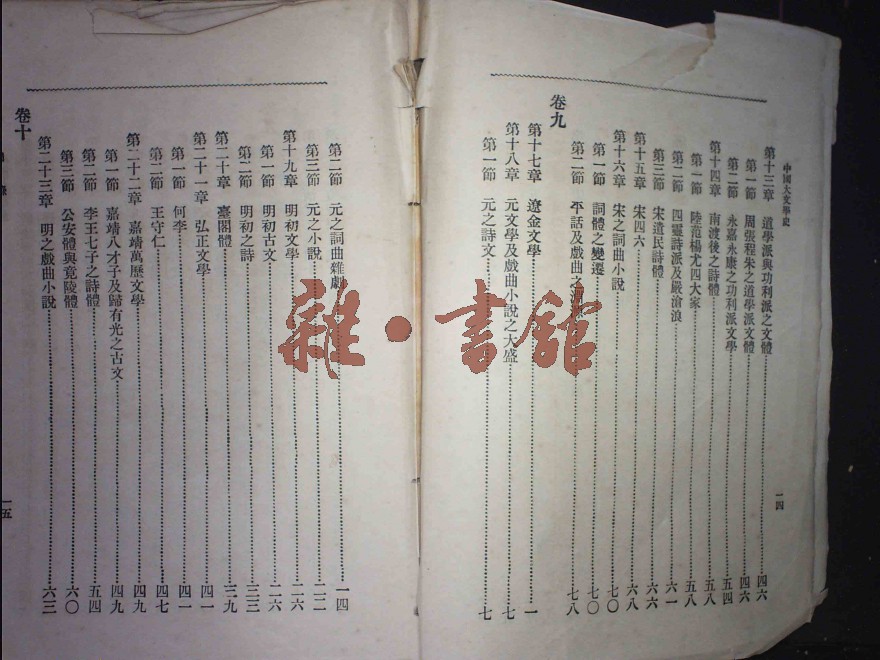 中國大文學史
第十三章 道學派與功利派之文體 四六
第一節 周張程朱之道學派文體 四六
第二節 永嘉永康之功利派文學 五四
第十四章 南渡後之詩體 五八
第一節 陸范楊尤四大家 五八
第二節 四靈詩派及嚴滄浪 六一
第三節 宋遺民詩體 六六
第十五章 宋四六 六八
第十六章 宋之詞曲小說 七〇
第一節 詞體之變遷 七〇
第二節 平話及戲曲之 七八
卷九
第十七章 遼金文學 一
第十八章 元文學及戲曲小說之大盛 七
第一節 元之詩文 七
一四
第二節 元之詞曲雜劇 一四
第三節 元之小說 二二
第十九章 明初文學 二六
第一節 明初古文 二六
第二節 明初之詩 三三
第二十章 臺閣體 三九
第二十一章 弘正文學 四一
第一節 何李 四一
第二節 王守仁 四七
第二十二章 嘉靖萬歷文學 四九
第一節 嘉靖八才子及歸有光之古文 四九
第二節 李王七子之詩體 五四
第三節 公安體與竟陵體 六〇
第二十三章 明之戲曲小說 六三
卷十
一五
雜·書館